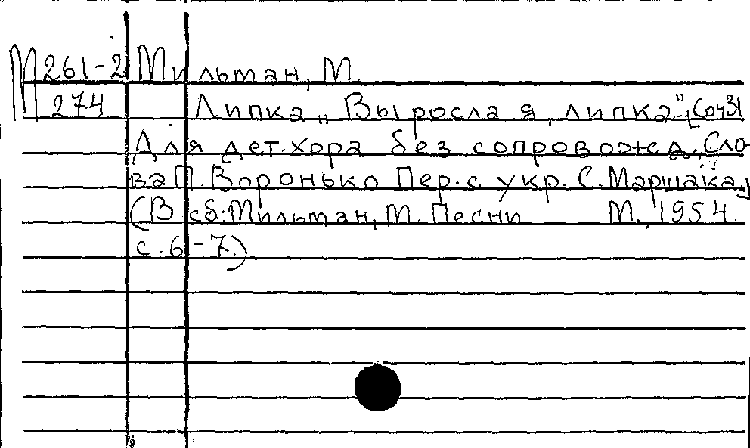 М261-2 Мильман, М.
274 Липка „Выросла я, липка“, [Соч.
Для дет. хора без сопровожд. Сло-
ва П. Воронько Пер. с укр. С. Маршака.]
(В сб: Мильман, М. Песни М., 1954.
с. 6-7.)